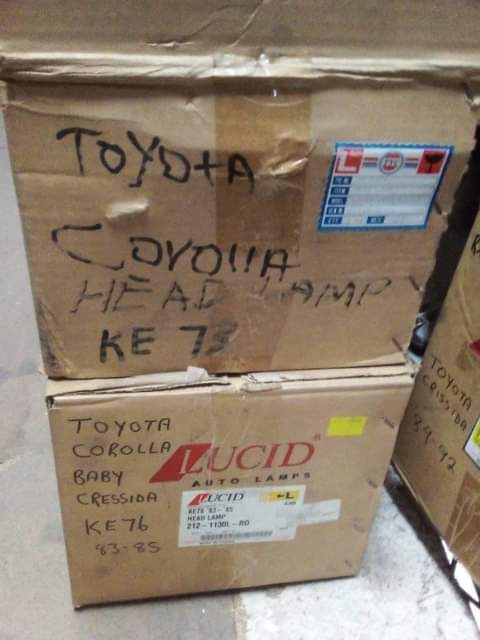 TOYOTA
COROLLA
HEAD LAMP
KE 73
L
TOYOTA
COROLLA
BABY
CRESSIDA
KE76
83-85
LUCID®
AUTO LAMPS
LUCID
L
KE76 83-85
HEAD LAMP
212-1130L-RD
TOYOTA
CRISSIDA
89-92